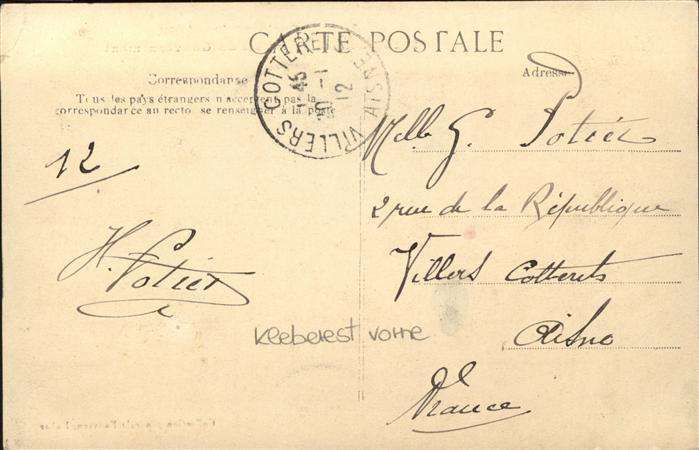 CARTE POSTALE
Correspondance
Tous les pays étrangers n'acceptent pas la
correspondance au recto, se renseigner à la poste
Adresse
VILLERS COTTERETS AISNE
45
20 -1
12
12
H. Potier
Melle G. Potier
2 rue de la République
Villers Cotterets
Aisne
France
Kleberest vorne